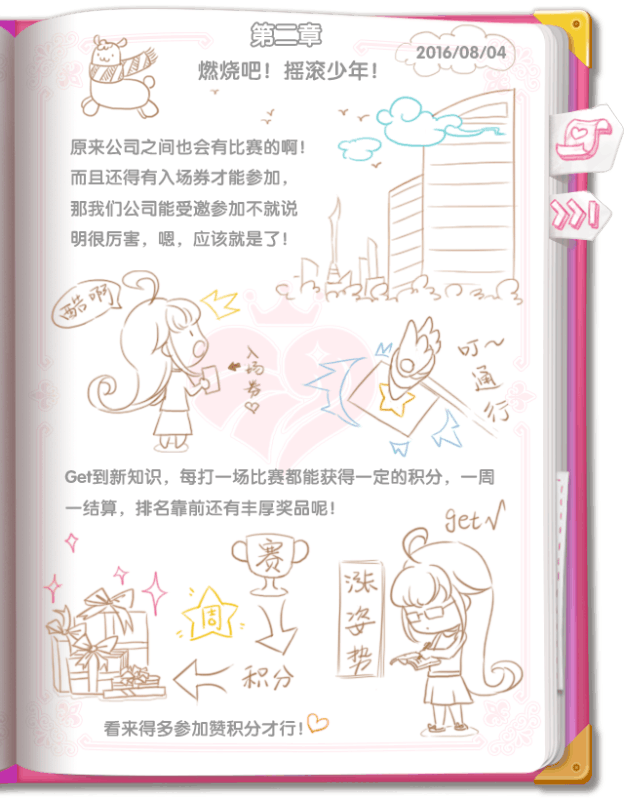 第二章
2016/08/04
燃烧吧！摇滚少年！
原来公司之间也会有比赛的啊！
而且还得有入场券才能参加，
那我们公司能受邀参加不就说
明很厉害，嗯，应该就是了！
酷啊
入场券
叮～
通行
Get到新知识，每打一场比赛都能获得一定的积分，一周
一结算，排名靠前还有丰厚奖品呢！
get√
赛
涨姿势
周
积分
看来得多参加赞积分才行！